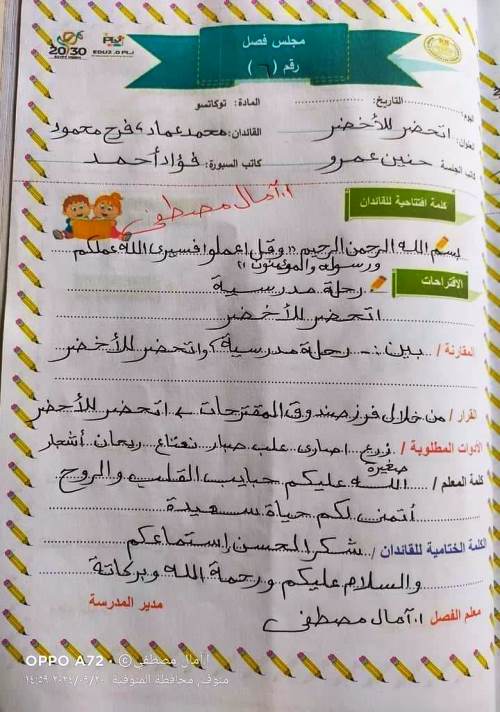 20/30
EDU2.0
مجلس فصل
رقم (٦)
اليوم: التاريخ: المادة: توكاتسو
العنوان: اتحضر للأخضر القائدان: محمد عماد & فرح محمود
كاتب الجلسة حنين عمرو كاتب السبورة: فؤاد أحمد
كلمة افتتاحية للقائدان
أ. آمال مصطفى
بسم الله الرحمن الرحيم "وقل اعملوا فسيرى الله عملكم
ورسوله والمؤمنون"
الاقتراحات
رحلة مدرسية
اتحضر للأخضر
المقارنة / بين :- رحلة مدرسية & واتحضر للأخضر
القرار / من خلال فرز صندوق المقترحات ← اتحضر للأخضر
الأدوات المطلوبة / زرع اصارى علب صبار نعناع ريحان أشجار
صغيرة
كلمة المعلم / الله عليكم حبايب القلب والروح
أتمنى لكم حياة سعيدة
الكلمة الختامية للقائدان / شكرا لحسن إستماعكم
والسلام عليكم ورحمة الله وبركاتة
معلم الفصل أ. آمال مصطفى مدير المدرسة
OPPO A72 · © أ/آمال مصطفي
منوف, محافظة المنوفية ٢٠٢٤/٠٩/٢٠ ١٤:٥٩